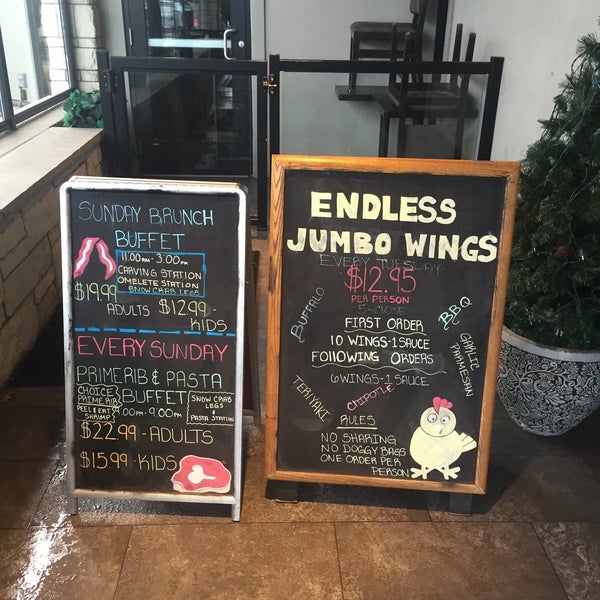 SUNDAY BRUNCH
BUFFET
11:00AM - 3:00PM
CARVING STATION
OMELETE STATION
SNOW CRAB LEGS
$19.99
ADULTS $12.99 -
KIDS
EVERY SUNDAY
PRIMERIB & PASTA
BUFFET
CHOICE
PRIMERIB
PEEL & EAT
SHRIMP
:00PM - 9:00PM
SNOW CRAB
LEGS
PASTA STATION
$22.99 - ADULTS
$15.99 - KIDS
ENDLESS
JUMBO WINGS
EVERY TUESDAY
$12.95
PER PERSON
5-CLOSE
FIRST ORDER
10 WINGS-1 SAUCE
FOLLOWING ORDERS
6 WINGS-1 SAUCE
BUFFALO
BBQ
GARLIC
PARMESIAN
TERIYAKI
CHIPOTLE
RULES
NO SHARING
NO DOGGY BAGS
ONE ORDER PER
PERSON